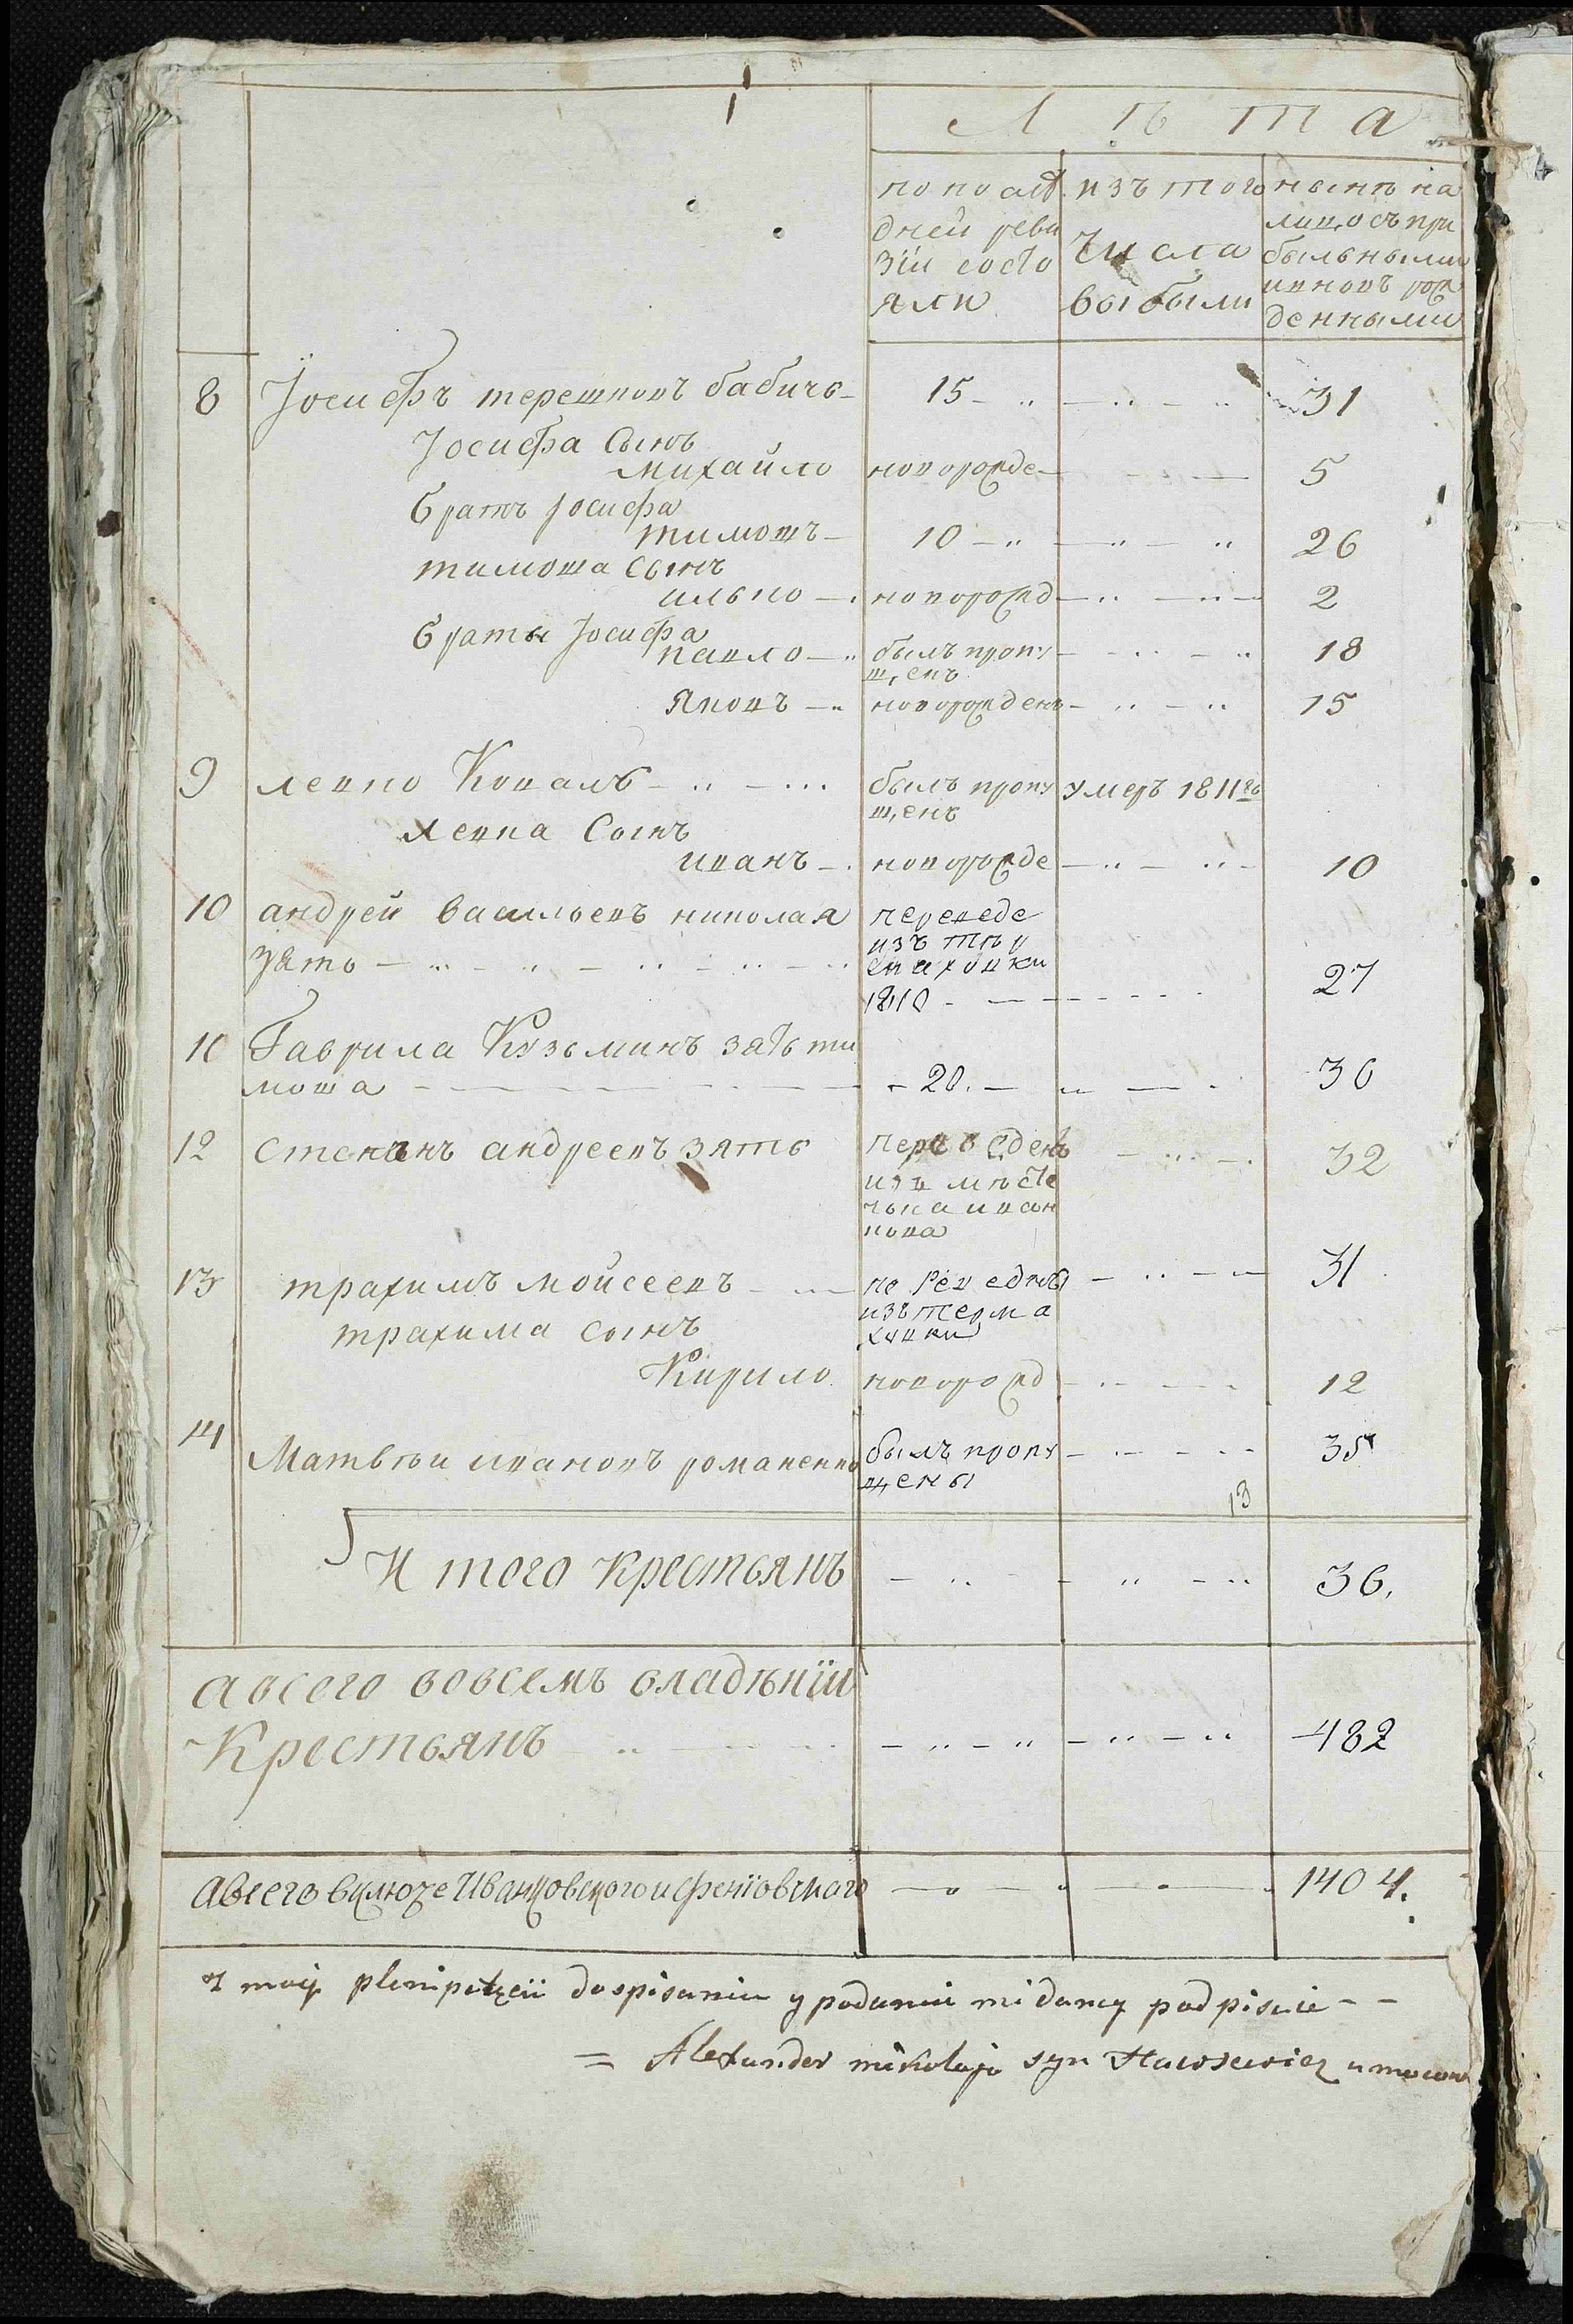 Лѣта
по послѣ
дней реви
зіи состо
яли
изъ того
числа
выбыли
нынѣ на
лицо съ при
быльными
и новорож
денными
8 Іосифъ терешковъ бабичъ 15 31
Іосифа Сынъ
михайло новорожде 5
братъ Іосифа
тимошъ 10 26
тимоша сынъ
илько новорожд 2
браты Іосифа
павло былъ пропу 18
щенъ
яковъ новорожденъ 15
9 левко Коваль былъ пропу умеръ 1811го
щенъ
левка Сынъ
иванъ новорожде 10
10 андрей васильевъ николая переведе
зять изъ
1810 27
11 Гаврила Кузьминъ зять ти
моша 20. 30
12 степанъ андреевъ зять переведенъ 32
изъ мѣсте
чька иван
кова
13 трахимъ мойсеевъ переведнъ 31
изъ терма
ховки
трахима сынъ
Кирило новорожд 12
14 Матвѣи ивановъ романенко былъ пропу 35
щены
13
И того крестьянъ 36.
а всего вовсемъ владѣніи
Крестьянъ 482
а всего включе Иванковского и феніовского 1404.
z moiy plenipotęcii do spisaniu y podaniu mi daney podpisuie - -
= Alexander mikołaja syn umocow